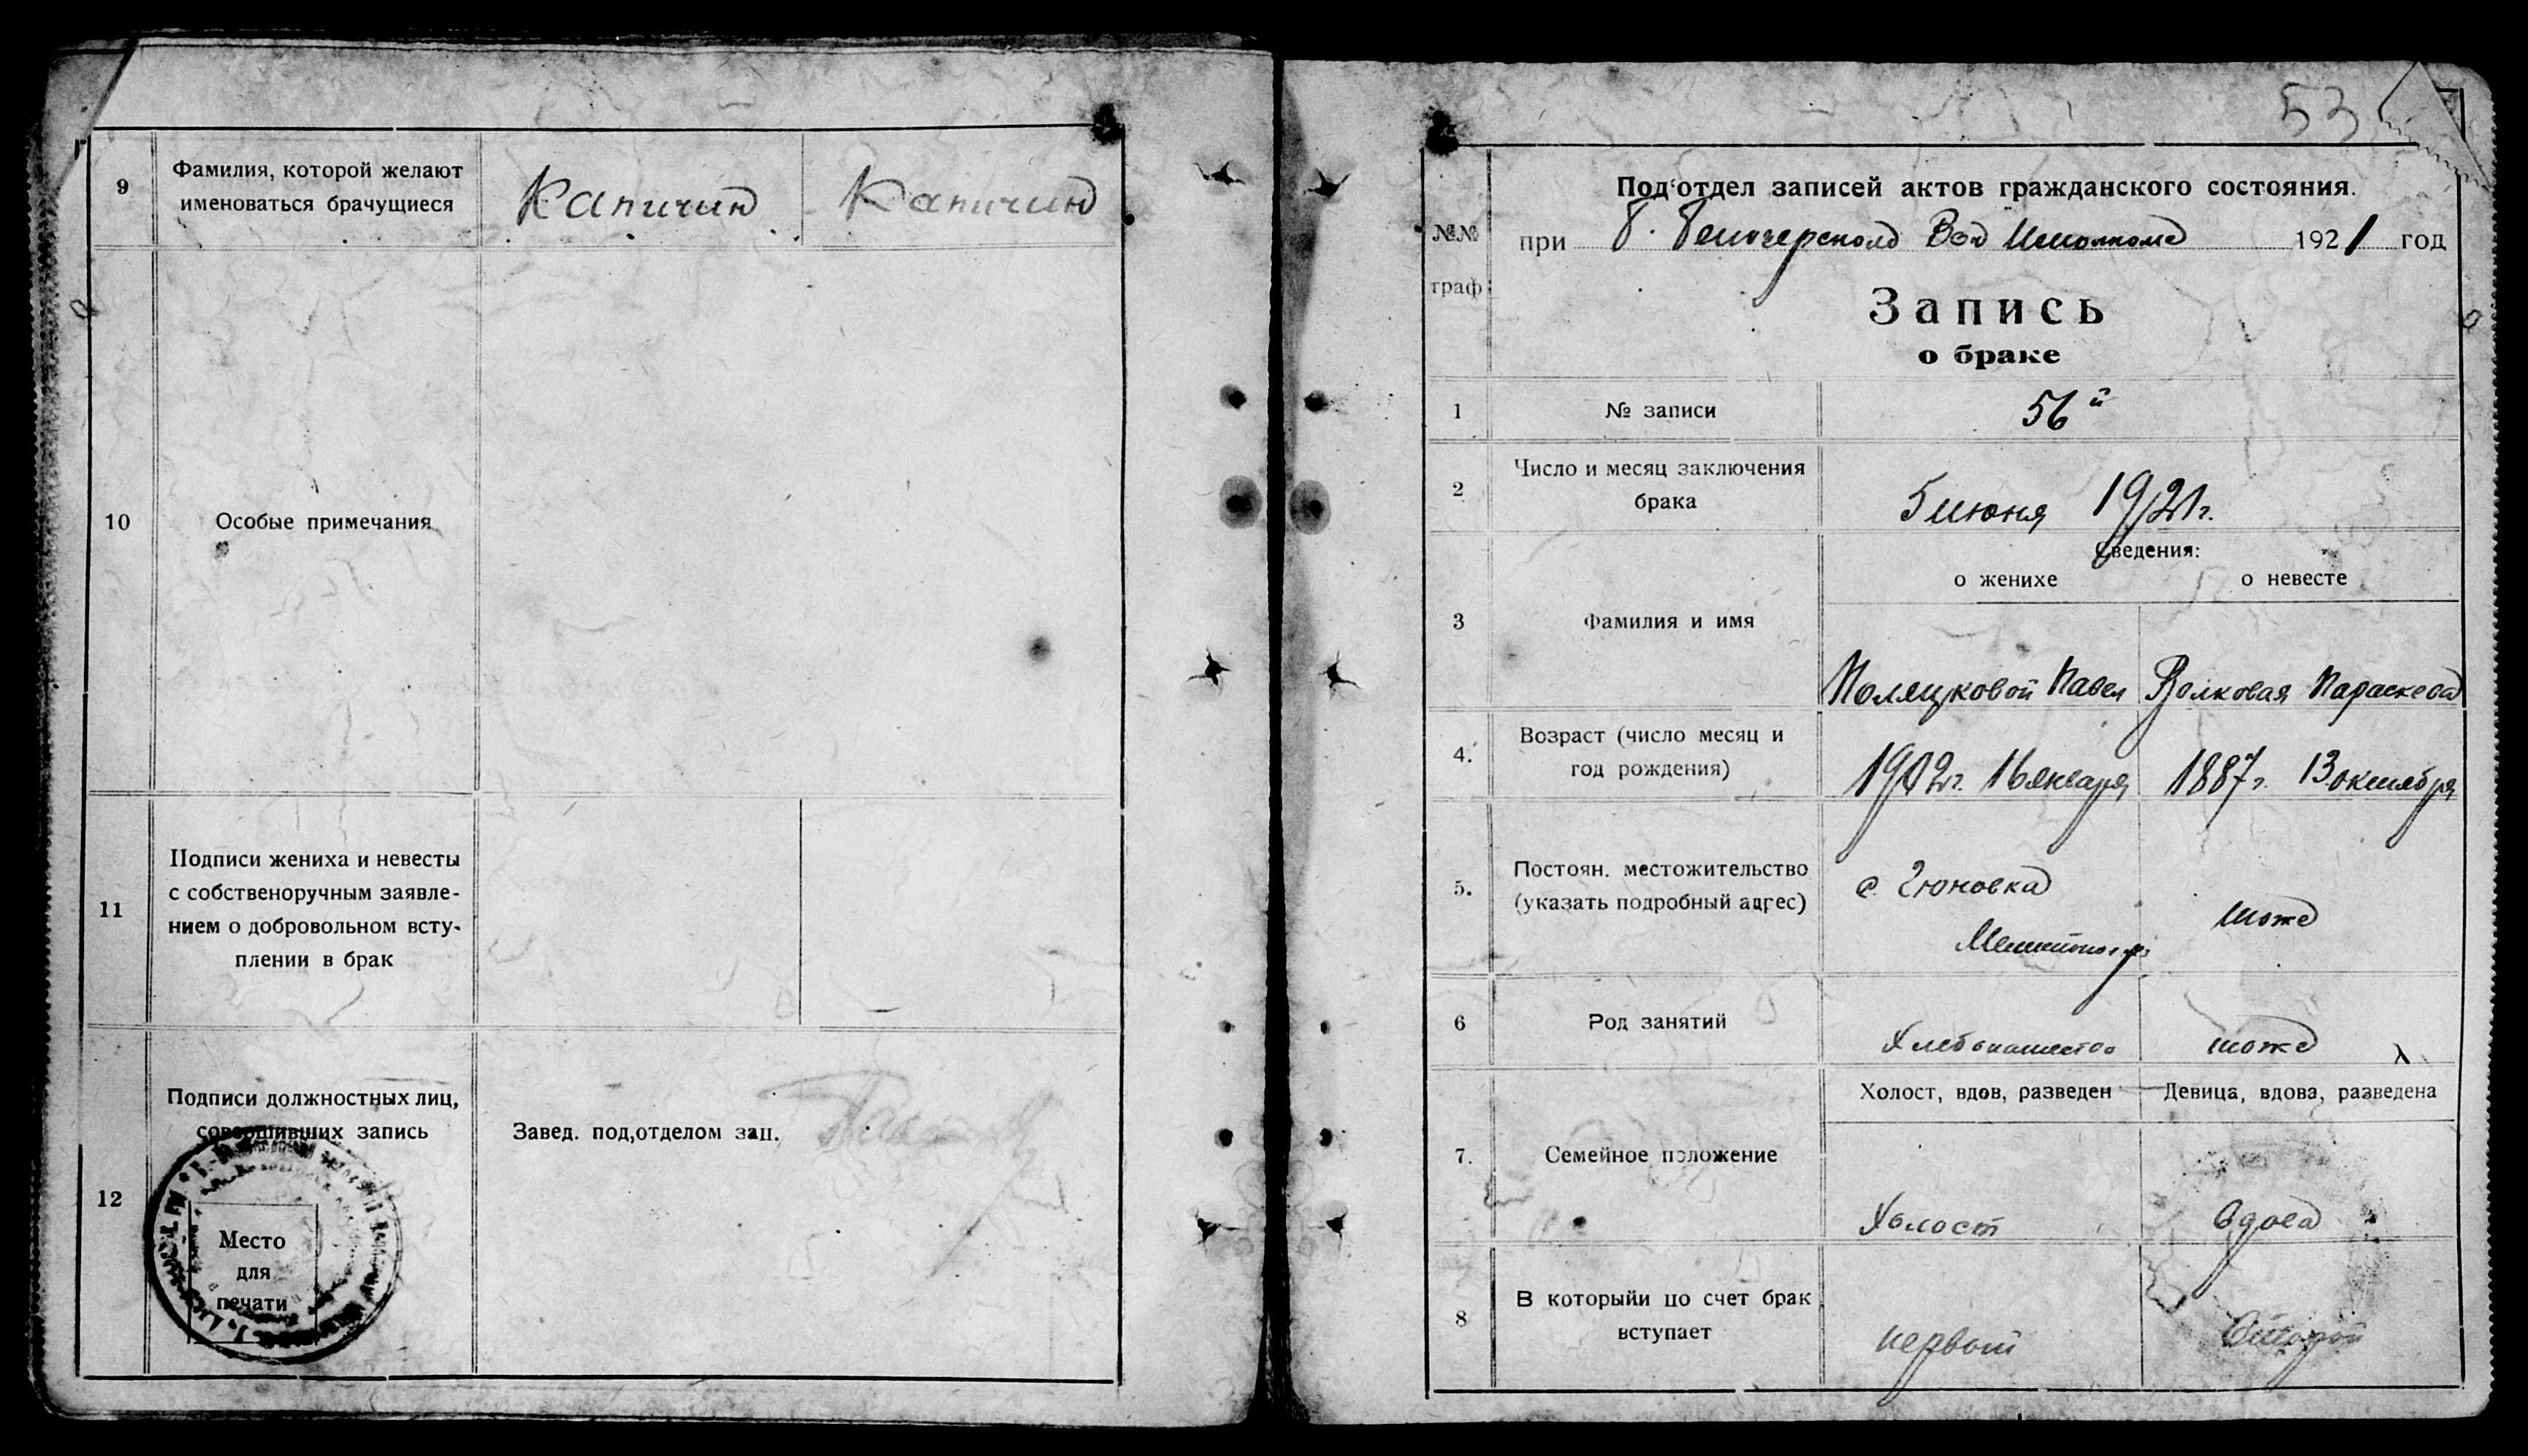 9
Фамилия, которой желают
именоваться брачущиеся
Капичин
Капичин
10
Особые примечания
11
Подписи жениха и невесты
с собственоручным заявле-
нием о добровольном всту-
плении в брак
12
Подписи должностных лиц,
совершивших запись
Завед. под,отделом зап.
Место
для
печати
53
№№
граф
Под'отдел записей актов гражданского состояния.
при Вол Исполкоме 1921 год
Запись
о браке
1
№ записи
56й
2
Число и месяц заключения
брака
5 июня 1921г.
Сведения:
о женихе
о невесте
3
Фамилия и имя
Павел
Волковая Параскева
4.
Возраст (число месяц и
год рождения)
1902г. 16 января
1887г. 13 октября
5.
Постоян. местожительство
(указать подробный адрес)
с. Гюновка
тоже
6
Род занятий
Хлебопашество
тоже
7.
Семейное положение
Холост, вдов, разведен
Девица, вдова, разведена
Холост
вдова
8
В которыйи по счет брак
вступает
первый
второй